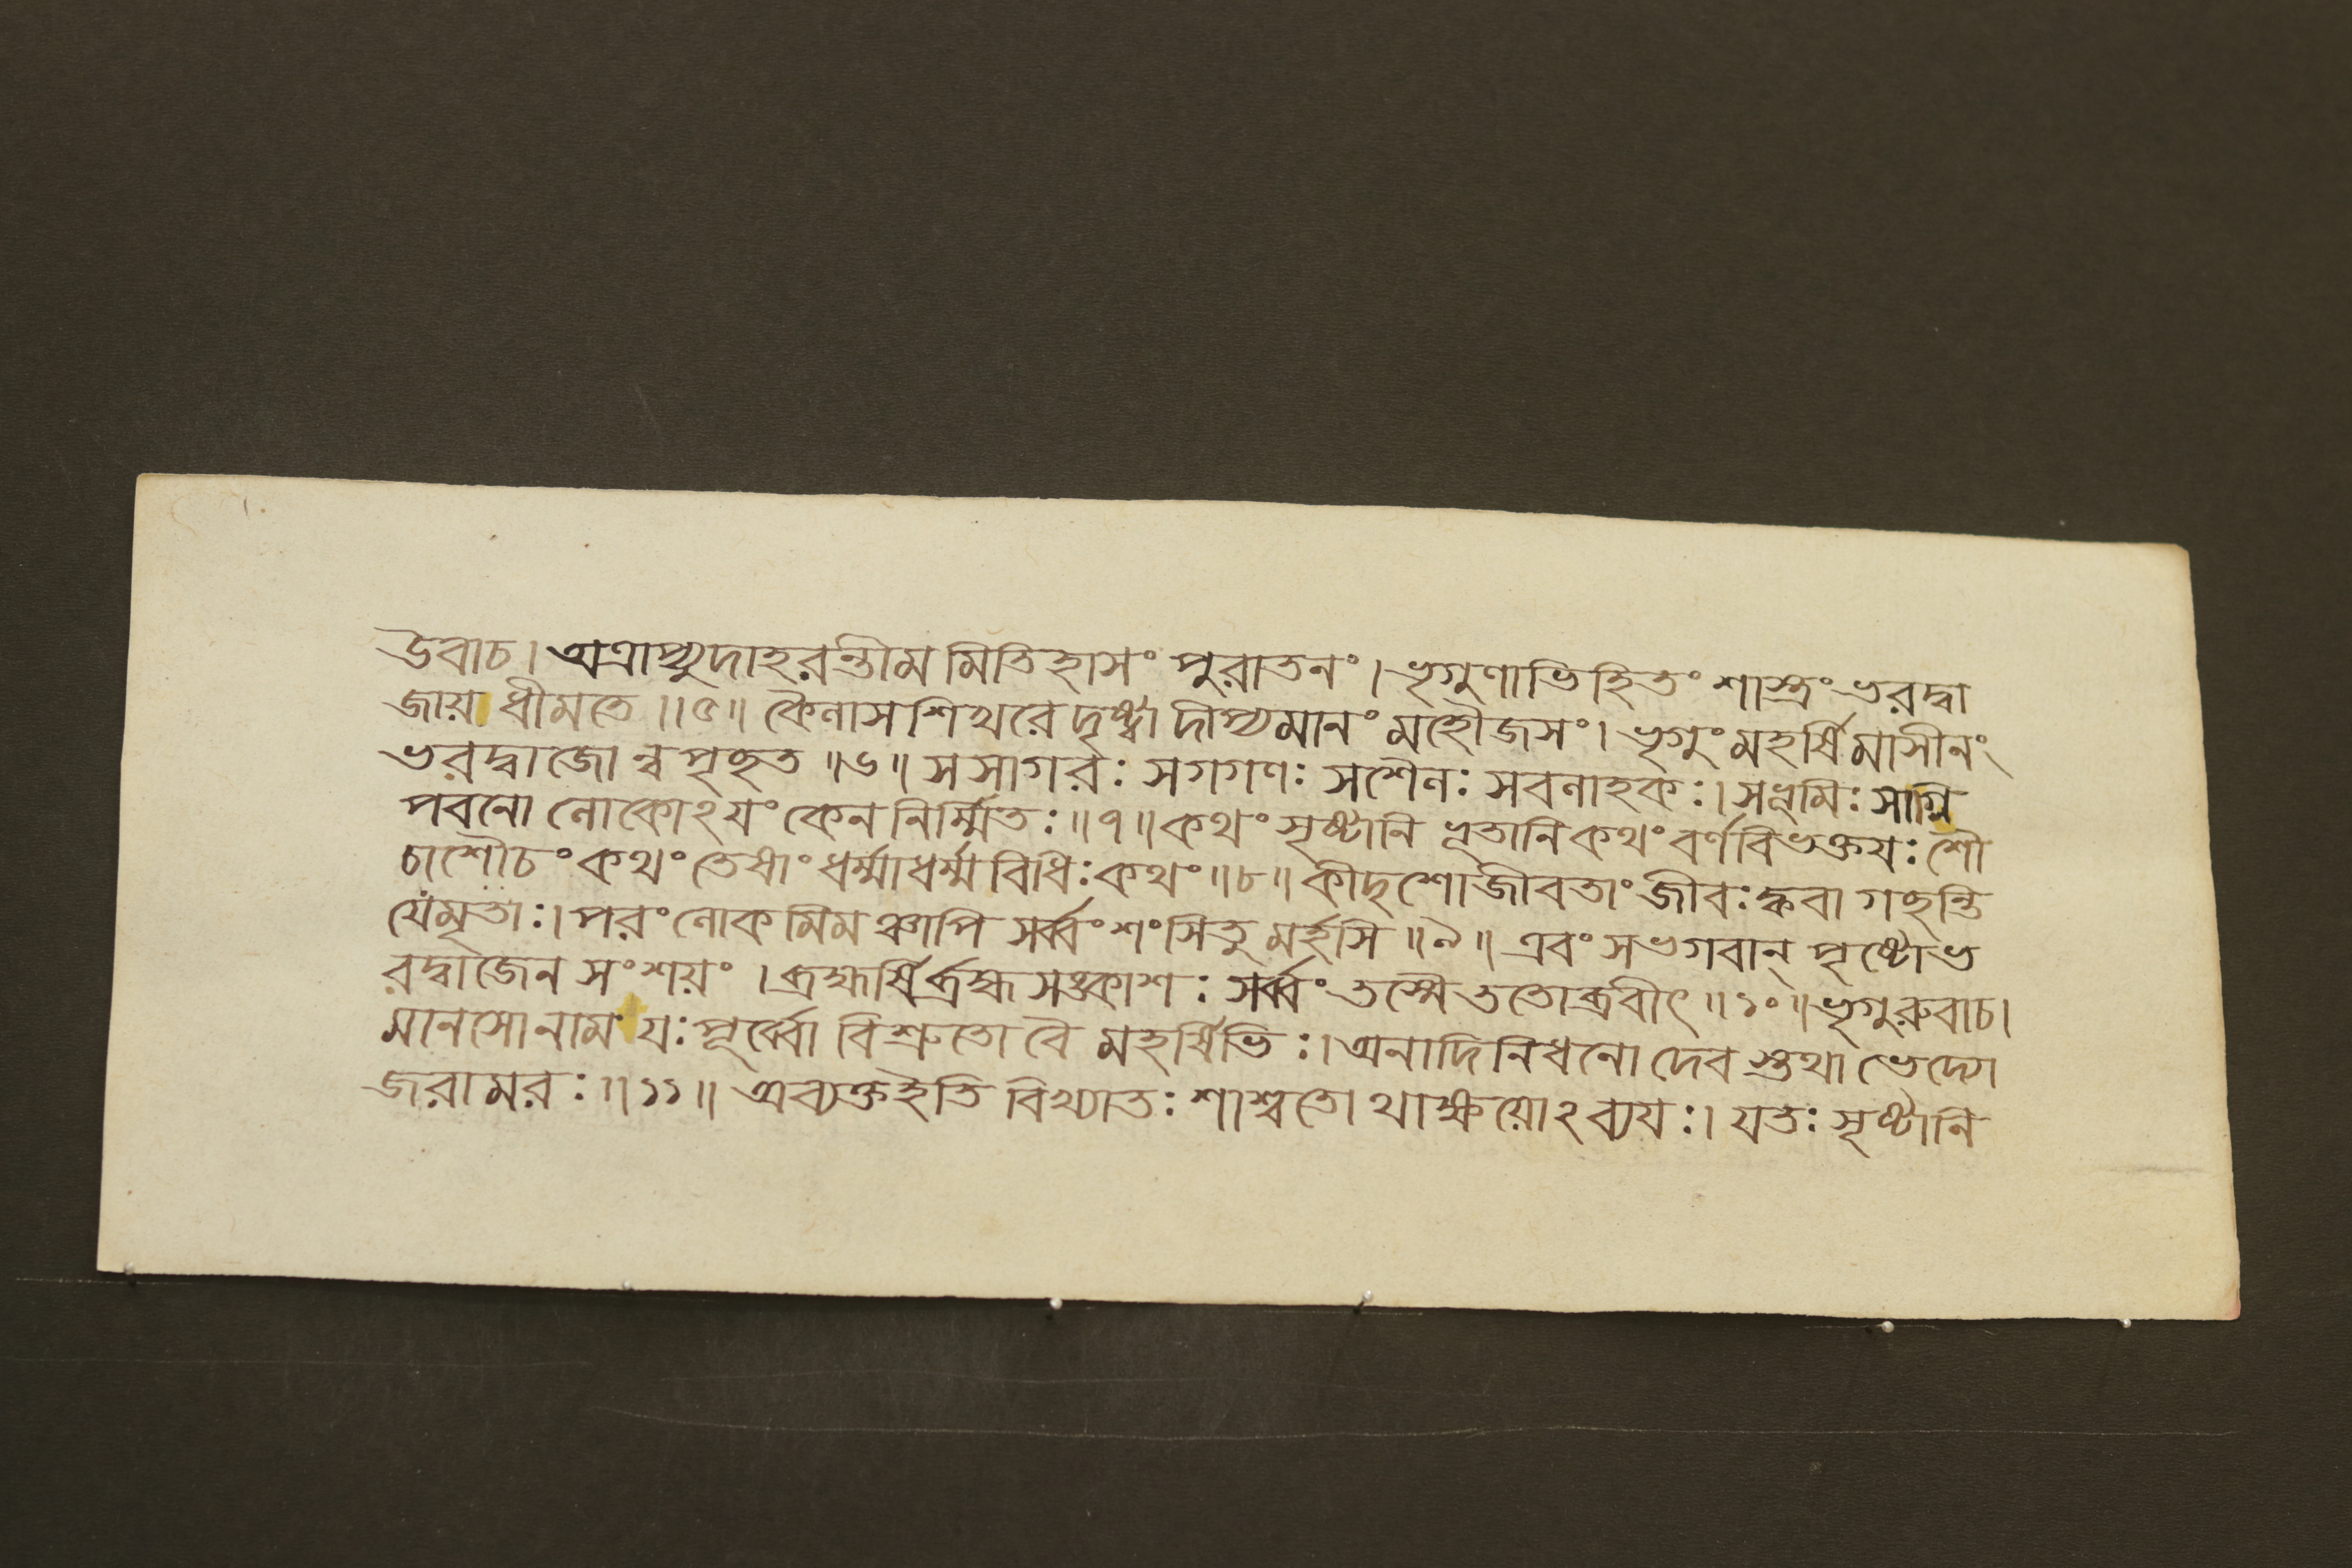 উবাচ। অত্রাপ্যুদাহরন্তীম মিতিহাসং পুরাতনং। ভৃগুণাভিহিতং শাস্ত্রং ভরদ্বা
জায় ধীমতে ॥৫॥ কৈলাসশিখরে দৃষ্ট্বা দীপ্যমানং মহৌজসং। ভৃগুং মহর্ষিমাসীনং
ভরদ্বাজোন্বপৃচ্ছত ॥৬॥ সসাগরঃ সগগণঃ সশৈলঃ সবলাহকঃ। সভূমিঃ সাগ্নি
পবনো লোকোঽয়ং কেন নির্ম্মিতঃ ॥৭॥ কথং সৃষ্টানি ভূতানি কথং বর্ণবিভক্তয়ঃ শৌ
চাশৌচং কথং তেষাং ধর্ম্মাধর্ম্মবিধিঃ কথং ॥৮॥ কীদৃশো জীবতাং জীবঃ ক্কবা গচ্ছন্তি
যেমৃতাঃ। পরং লোকমিমঞ্চাপি সর্ব্বং শংসিতুমর্হসি ॥৯॥ এবং সভগবান্ পৃষ্টোভ
রদ্বাজেন সংশয়ং। ব্রহ্মর্ষির্ব্রহ্মসঙ্কাশঃ সর্ব্বং তস্মৈ ততোব্রবীৎ ॥১০॥ ভৃগুরুবাচ।
মানসোনাম যঃ পূর্ব্বো বিশ্রুতো বৈ মহর্ষিভিঃ। অনাদিনিধনো দেবস্তথাভেদ্যো
জরামরঃ ॥১১॥ অব্যক্তইতি বিখ্যাতঃ শাশ্বতোথাক্ষয়োঽব্যয়ঃ। যতঃ সৃষ্টানি